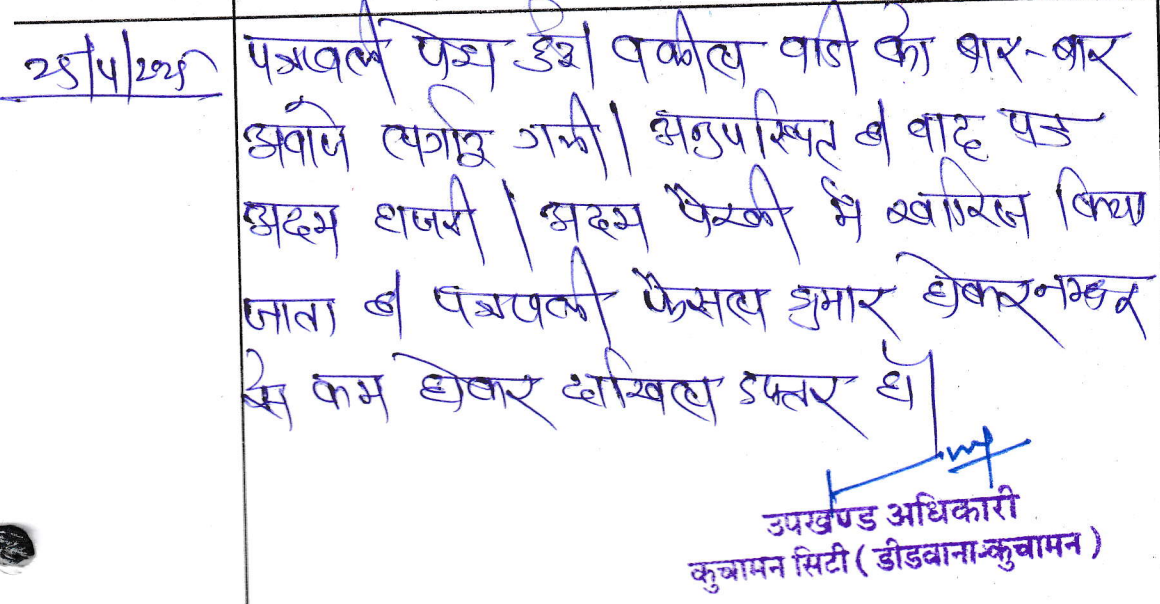 25/4/2025
पत्रावली पेश हुई। वकील वादी को बार-बार
आवाजे लगाई गयी। अनुपस्थित है वाद पत्र
अदम हाजरी । अदम पैरवी में खारिज किया
जाता है पत्रावली फैसल शुमार होकर नम्बर
से कम होकर दाखिल दफ्तर हो।
उपखण्ड अधिकारी
कुचामन सिटी ( डीडवाना-कुचामन )